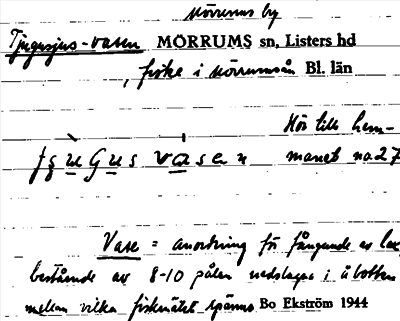 Mörrums by
Tjugusjus-vasen MÖRRUMS sn, Listers hd
, fiske i Mörrumsån Bl. län
Hör till hem-
manet no. 27
Vase = anordning för fångande av lax,
bestående av 8-10 pålar nedslagna i åbotten
mellan vilka fisknätet spänns Bo Ekström 1944